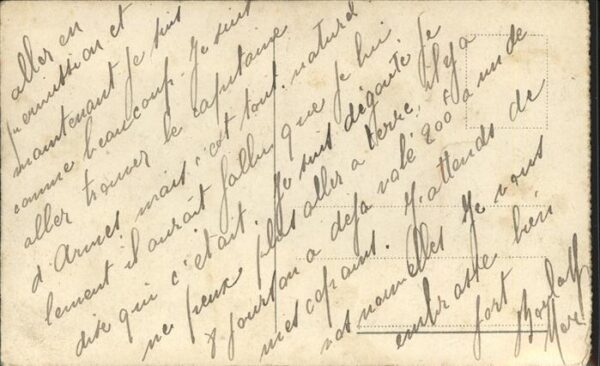 aller en
permission et
maintenant je suis
comme beaucoup. Je suis
aller trouver le capitaine
d'Armes mais c'est tout naturel
lement il aurait fallu que je lui
dise qui c'était. Je suis dégouté je
ne peux plus aller a terre. il y a
8 jours on a deja volé 200f a un de
mes copains. J'attends de
vos nouvelles Je vous
embrasse bien
fort